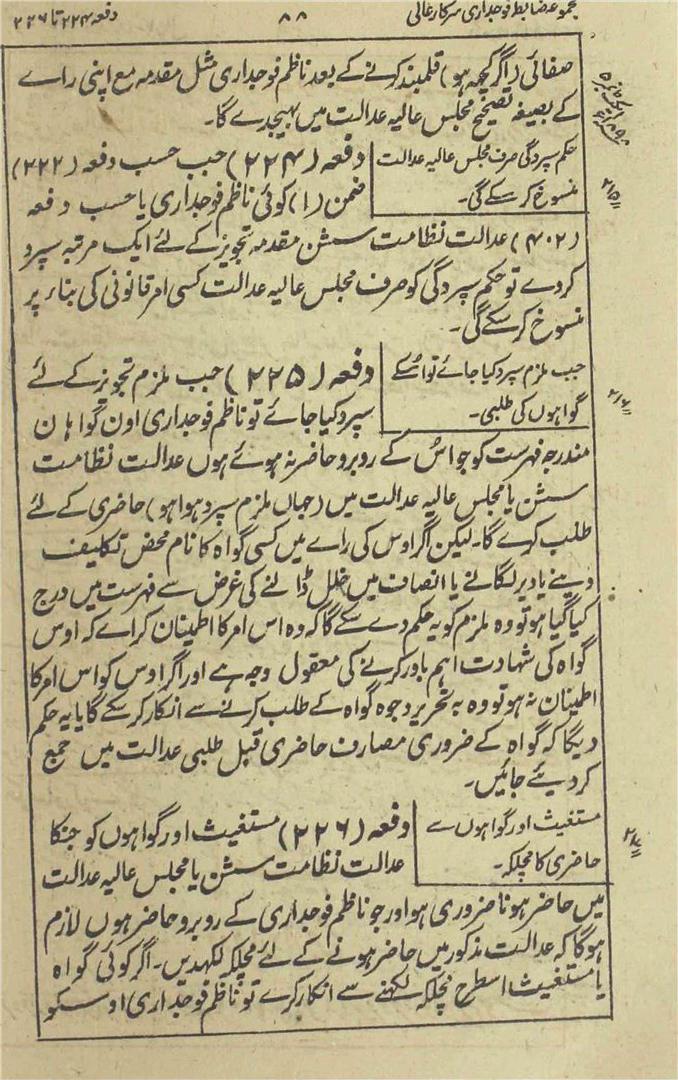 مجموعہ ضابطہ فوجداری سرکار عالی
۸۸
دفعہ ۲۲۴ تا ۲۲۶
صفائی (اگر کچھ ہو) قلمبند کرنے کے بعد ناظم فوجداری مثل مقدمہ مع اپنی رائے
کے بصیغہ تصحیح مجلس عالیہ عدالت میں بھیجدے گا۔
حکم سپردگی صرف مجلس عالیہ عدالت
منسوخ کر سکے گی۔
دفعہ (۲۲۴) جب حسب دفعہ (۲۲۲)
ضمن (۱) کوئی ناظم فوجداری یا حسب دفعہ
(۴۰۲) عدالت نظامت سشن مقدمہ تجویز کے لئے ایک مرتبہ سپرد
کردے تو حکم سپردگی کو صرف مجلس عالیہ عدالت کسی امر قانونی کی بناء پر
منسوخ کر سکے گی۔
جب ملزم سپرد کیا جائے تو اسکے
گواہوں کی طلبی۔
دفعہ (۲۲۵) جب ملزم تجویز کے لئے
سپرد کیا جائے تو ناظم فوجداری اون گواہان
مندرجہ فہرست کو جو اُس کے روبرو حاضر نہ ہوئے ہوں عدالت نظامت
سشن یا مجلس عالیہ عدالت میں (جہاں ملزم سپرد ہوا ہو) حاضری کے لئے
طلب کرے گا۔ لیکن اگر اوس کی رائے میں کسی گواہ کا نام محض تکلیف
دینے یا دیر لگانے یا انصاف میں خلل ڈالنے کی غرض سے فہرست میں درج
کیا گیا ہو تو وہ ملزم کو یہ حکم دے سکے گا کہ وہ اس امر کا اطمینان کرائے کہ اوس
گواہ کی شہادت اہم باور کرنے کی معقول وجہ ہے اور اگر اوس کو اس امر کا
اطمینان نہ ہو تو وہ بہ تحریر وجوہ گواہ کے طلب کرنے سے انکار کر سکے گا یا یہ حکم
دیگا کہ گواہ کے ضروری مصارف حاضری قبل طلبی عدالت میں جمع
کر دیئے جائیں۔
مستغیث اور گواہوں سے
حاضری کا مچلکہ۔
دفعہ (۲۲۶) مستغیث اور گواہوں کو جنکا
عدالت نظامت سشن یا مجلس عالیہ عدالت
میں حاضر ہونا ضروری ہو اور جو ناظم فوجداری کے روبرو حاضر ہوں لازم
ہوگا کہ عدالت مذکور میں حاضر ہونے کے لئے مچلکہ لکھدیں۔ اگر کوئی گواہ
یا مستغیث اسطرح مچلکہ لکھنے سے انکار کرے تو ناظم فوجداری اوسکو